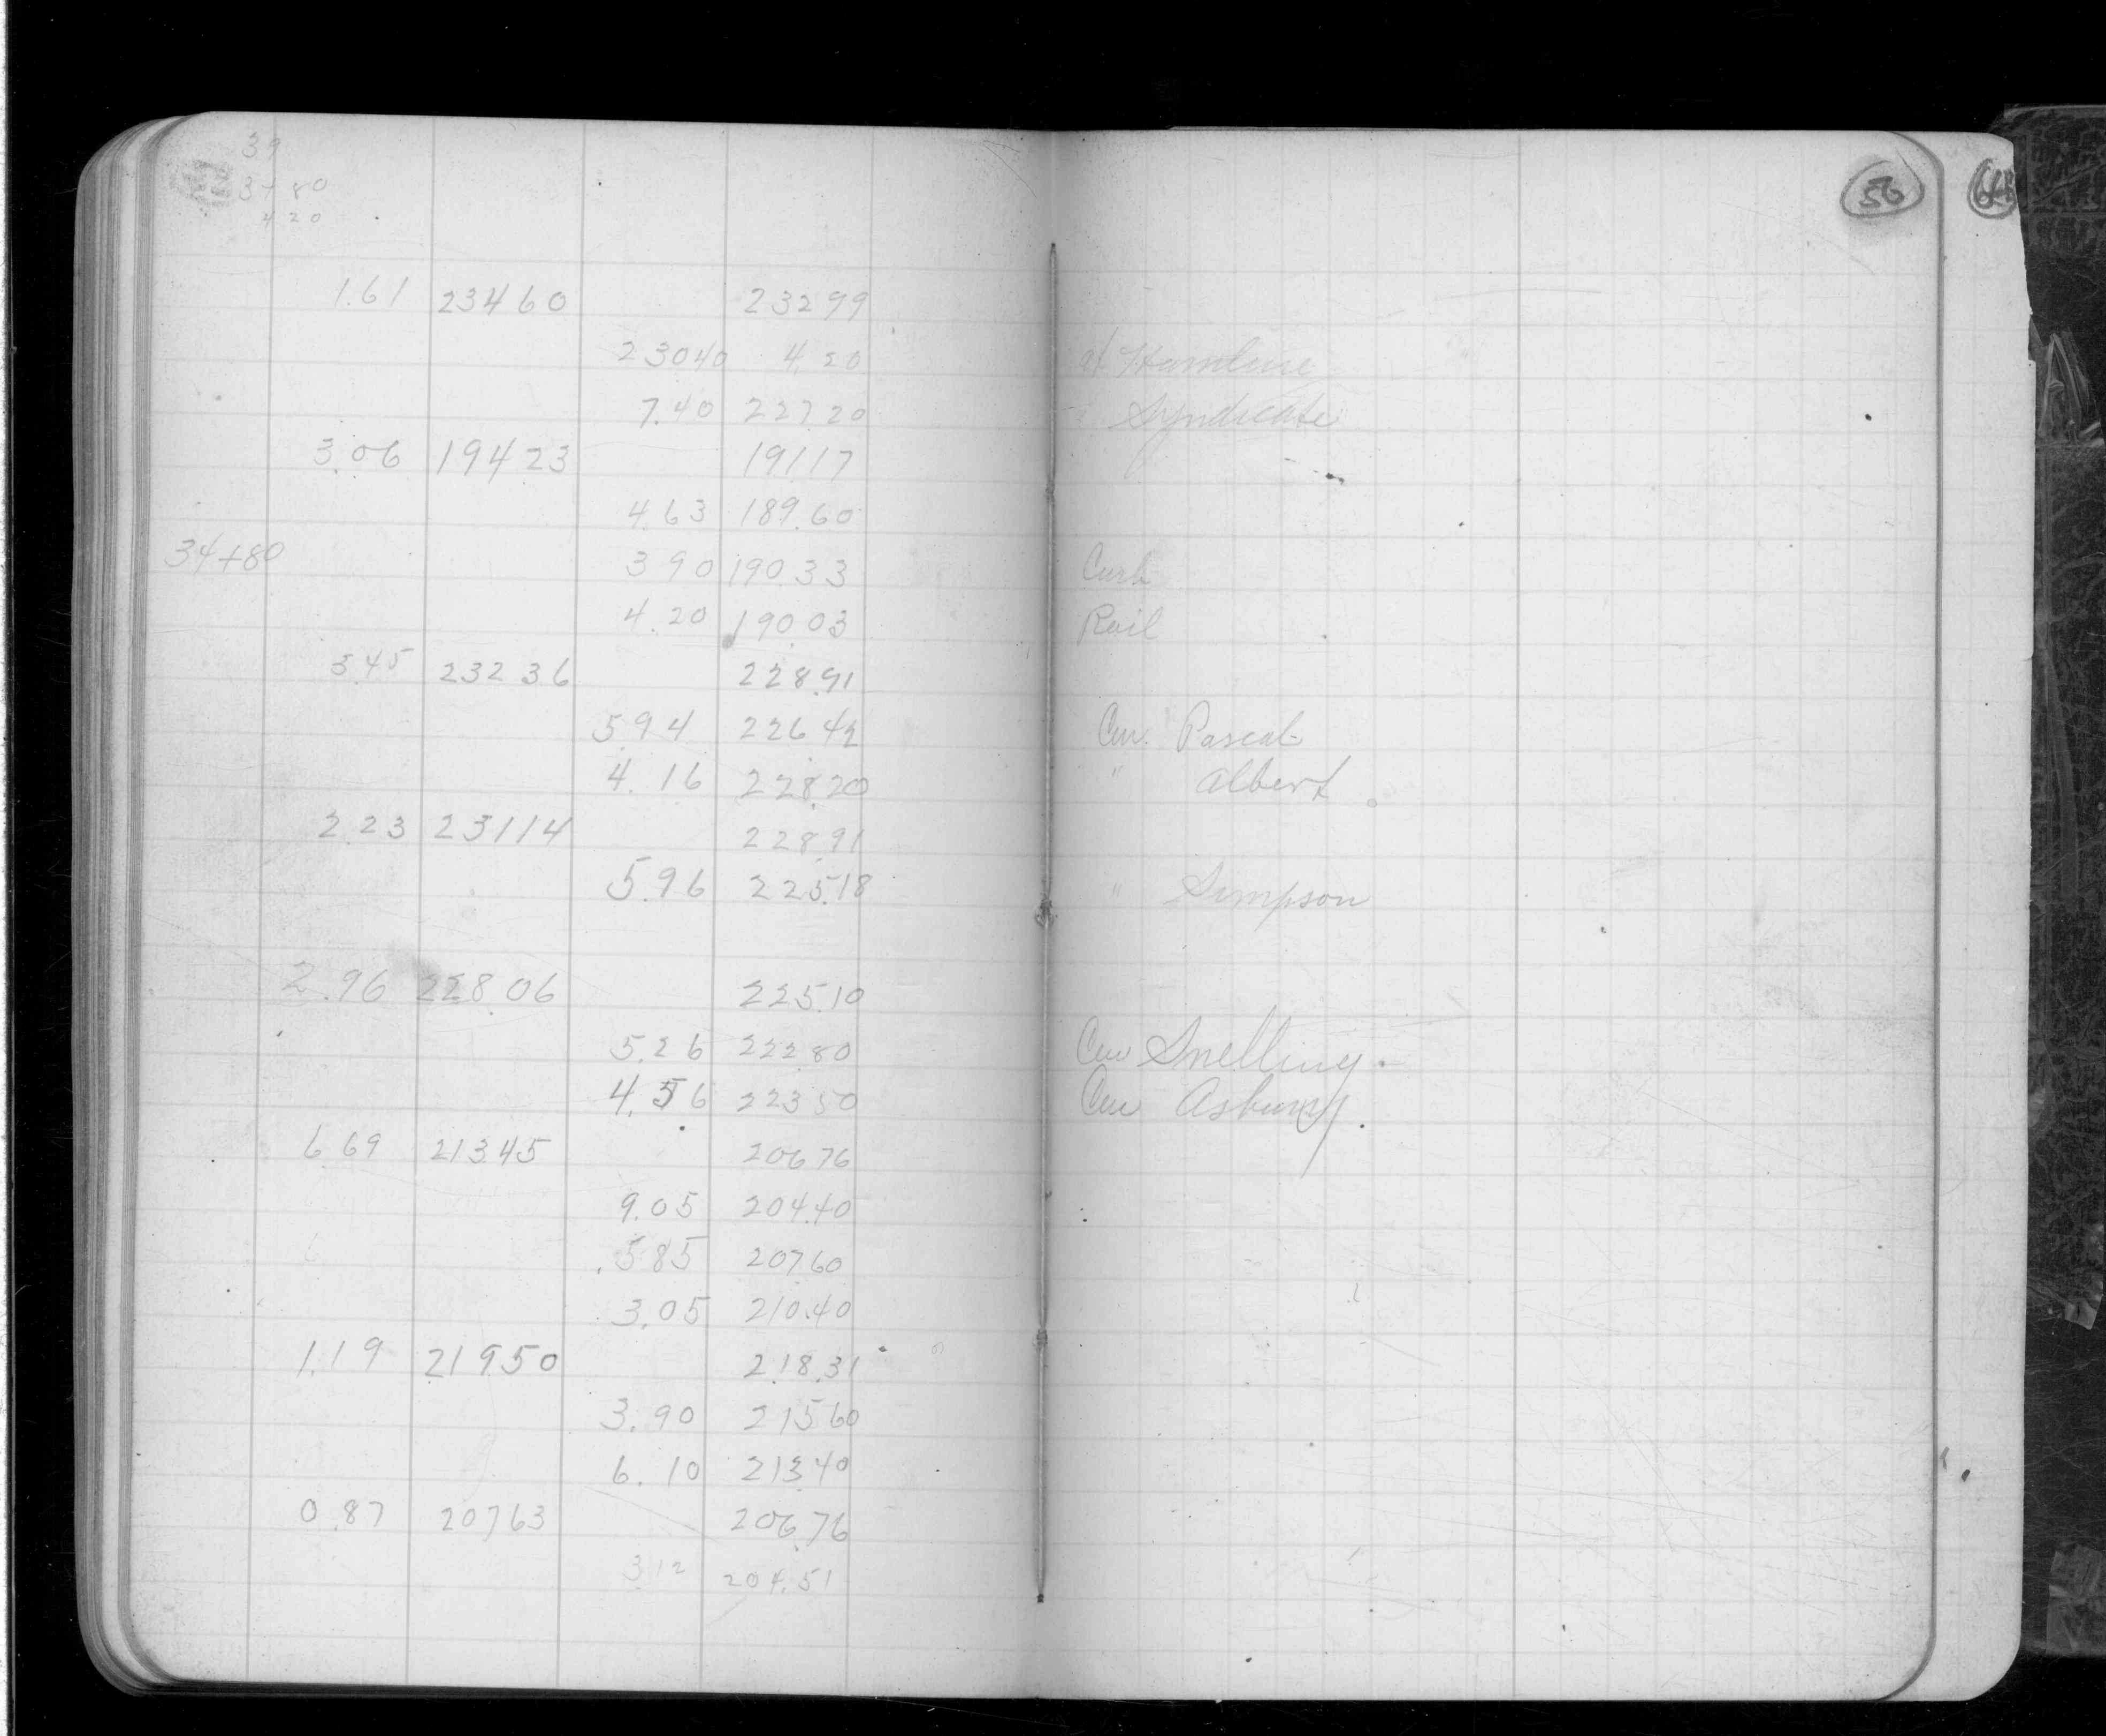 39
34 80
4 20
56
1.61 234 60 232 99
230 40 4.20 at Hamline
7.40 227 20 Syndicate
3.06 194 23 191 17
4.63 189.60
34+80 3 90 190 33 Curb
4.20 190 03 Rail
3.45 232 36 228.91
5.94 226.42 Cen. Pascal
4.16 228.20 " Albert
2 23 231 14 228.91
5.96 225.18 " Simpson
2.96 228.06 225.10
5.26 222 80 Cen Snelling.
4.56 223 50 Cen Asbury.
6 69 213.45 206 76
9.05 204.40
5.85 207.60
3.05 210.40
1.19 219.50 218.31
3.90 215 60
6.10 213.40
0.87 207.63 206.76
3.12 204.51